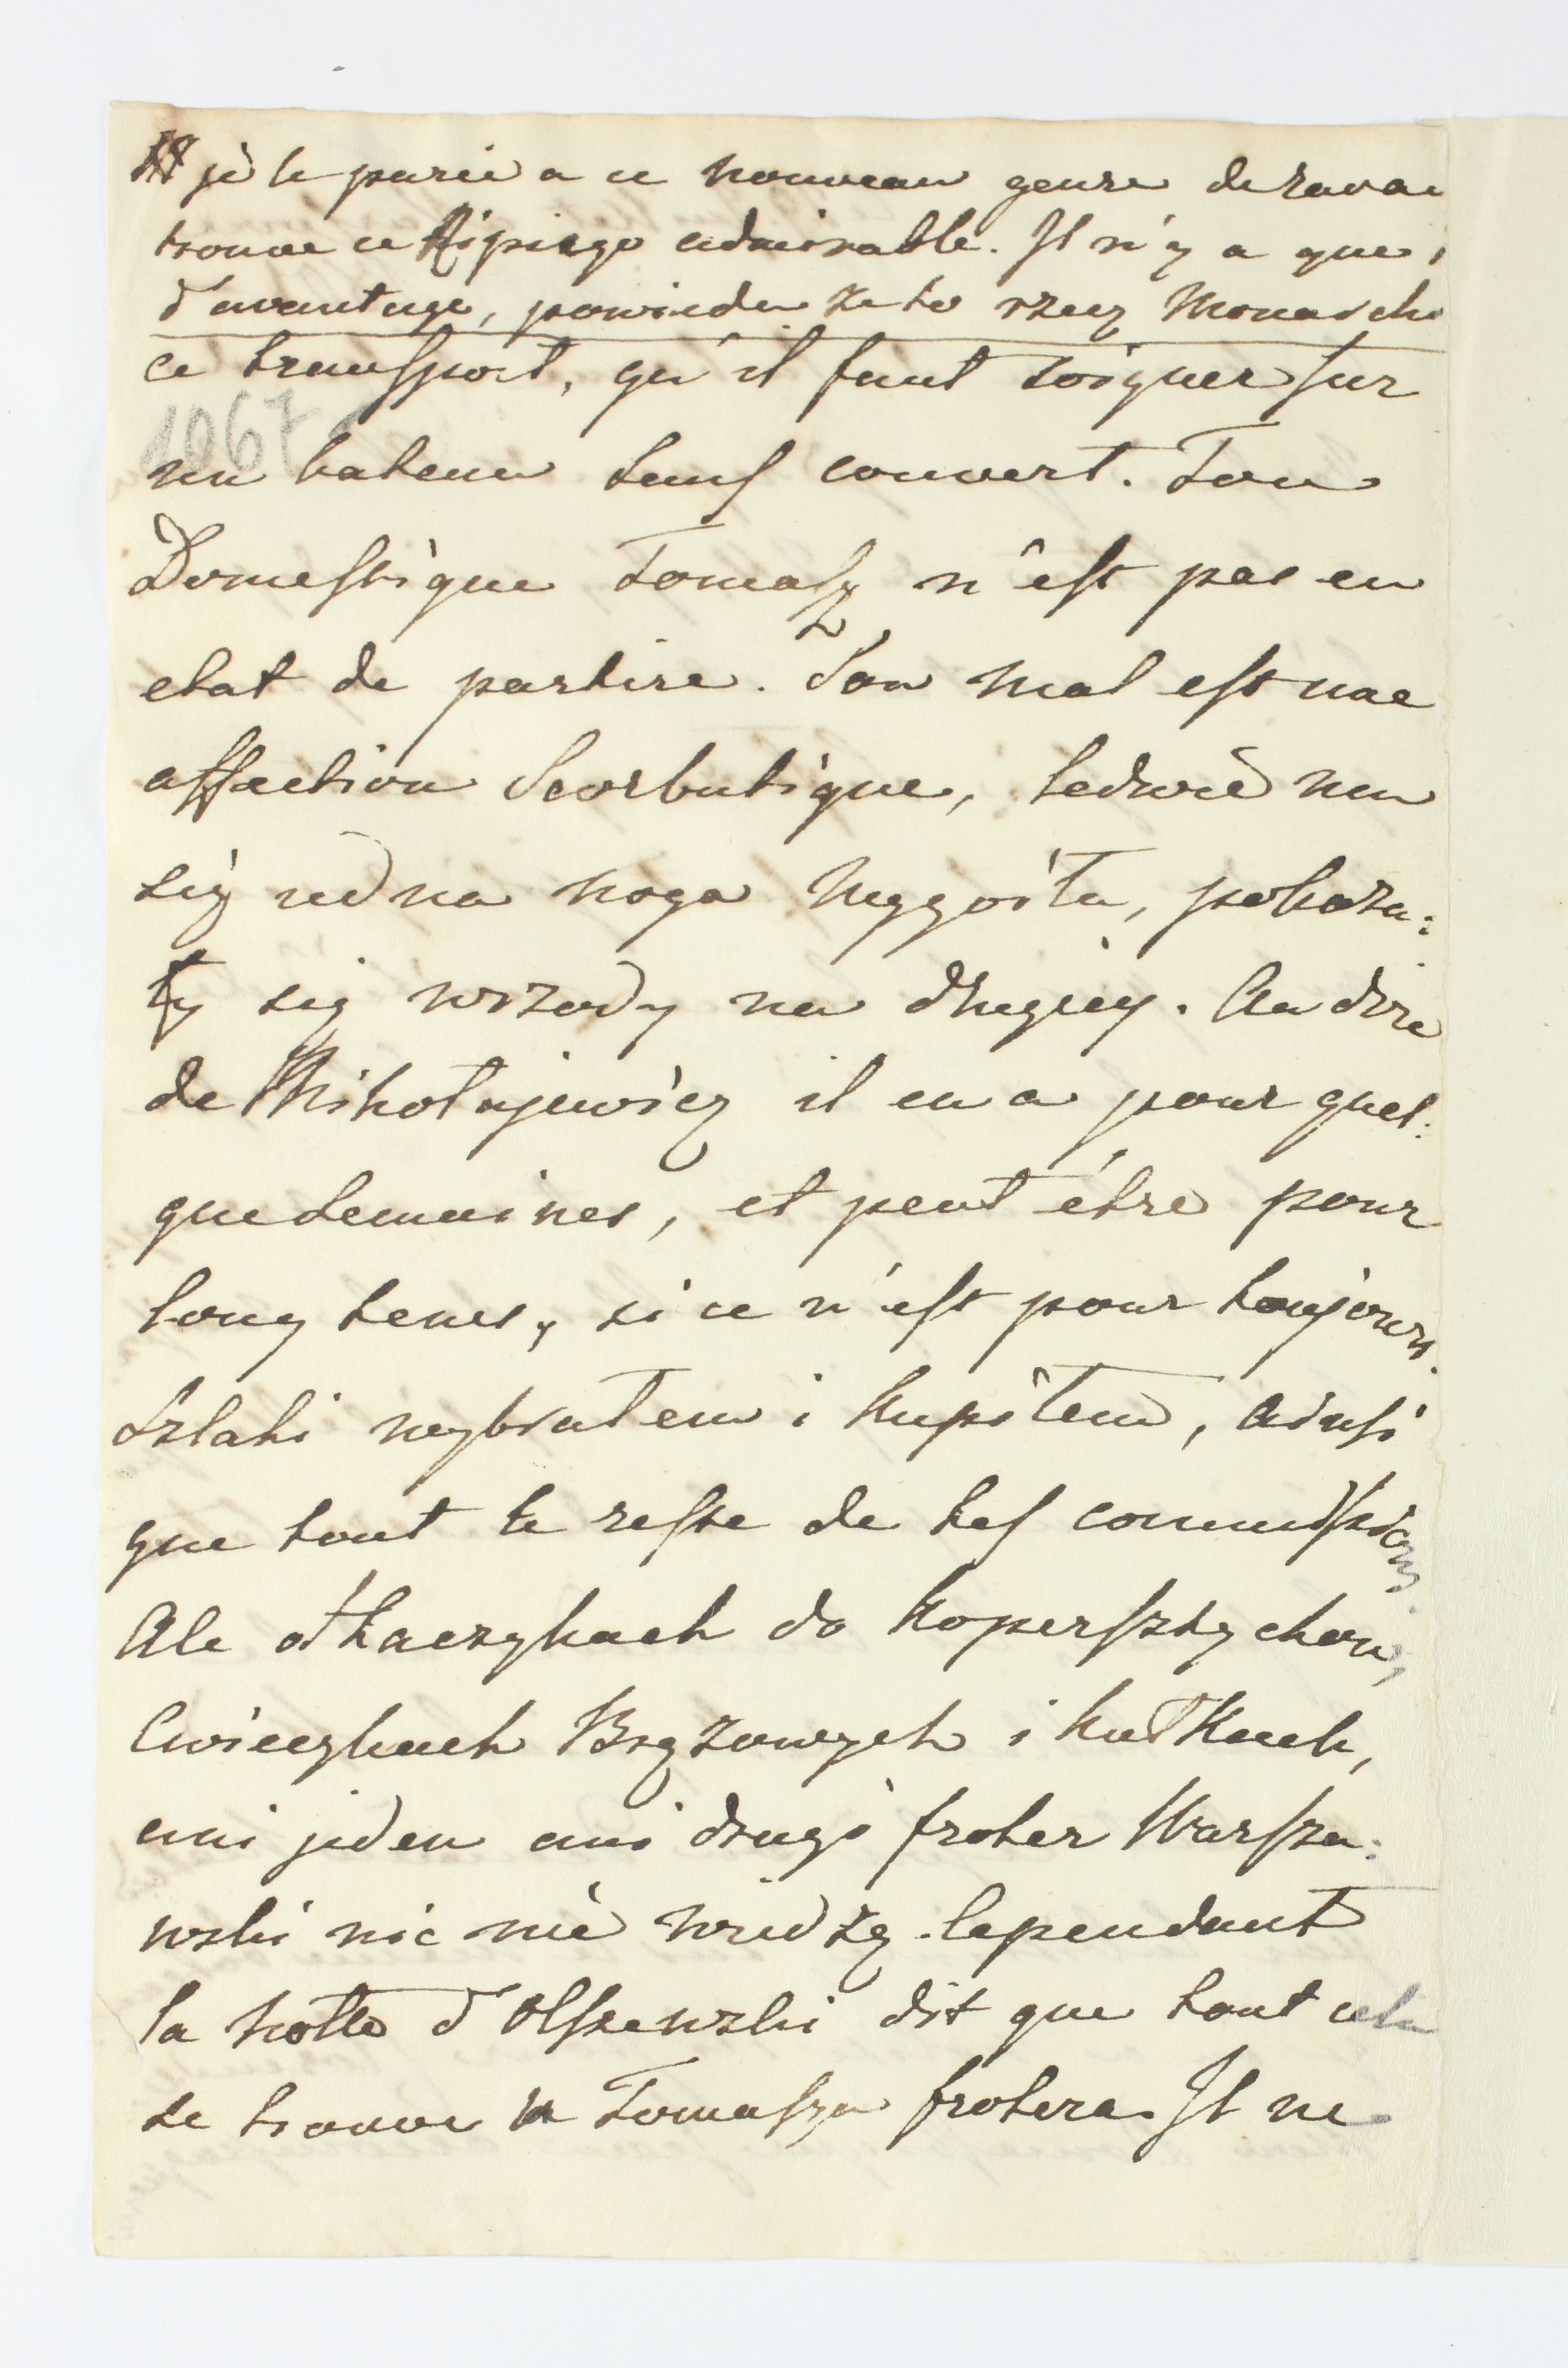 je le parie a ce nouveau genre de
trouve ce Ripiego admirable. Il n'y a que
d'avantage, powiedz że to rzecz
ce transport, qu'il faut soigner sur
1067
un bateau sauf couvert. Ton
Domestique Tomasz n'est pas en
etat de partire. Son mal est une
affection Scorbutique, ledwie mu
się iedna noga wygoiła, pokaza:
ły się wrzody na drugiey. Au dire
de Mikołajewicz il en a pour quel:
que semaines, et peut être pour
long tems, si ce n'est pour toujours.
Szlaki wybrałem i kupiłem, ainsi
que tout le reste de tes commissions
Ale o tkaczykach do
Cwieczkach Brązowych i kutkach,
ani jeden ani drugi froter Warsza:
wski nic nie wiedzą. Cependant
la notte d'Olszewski dit que tout cela
se trouve u Tomasza frotera. Il ne